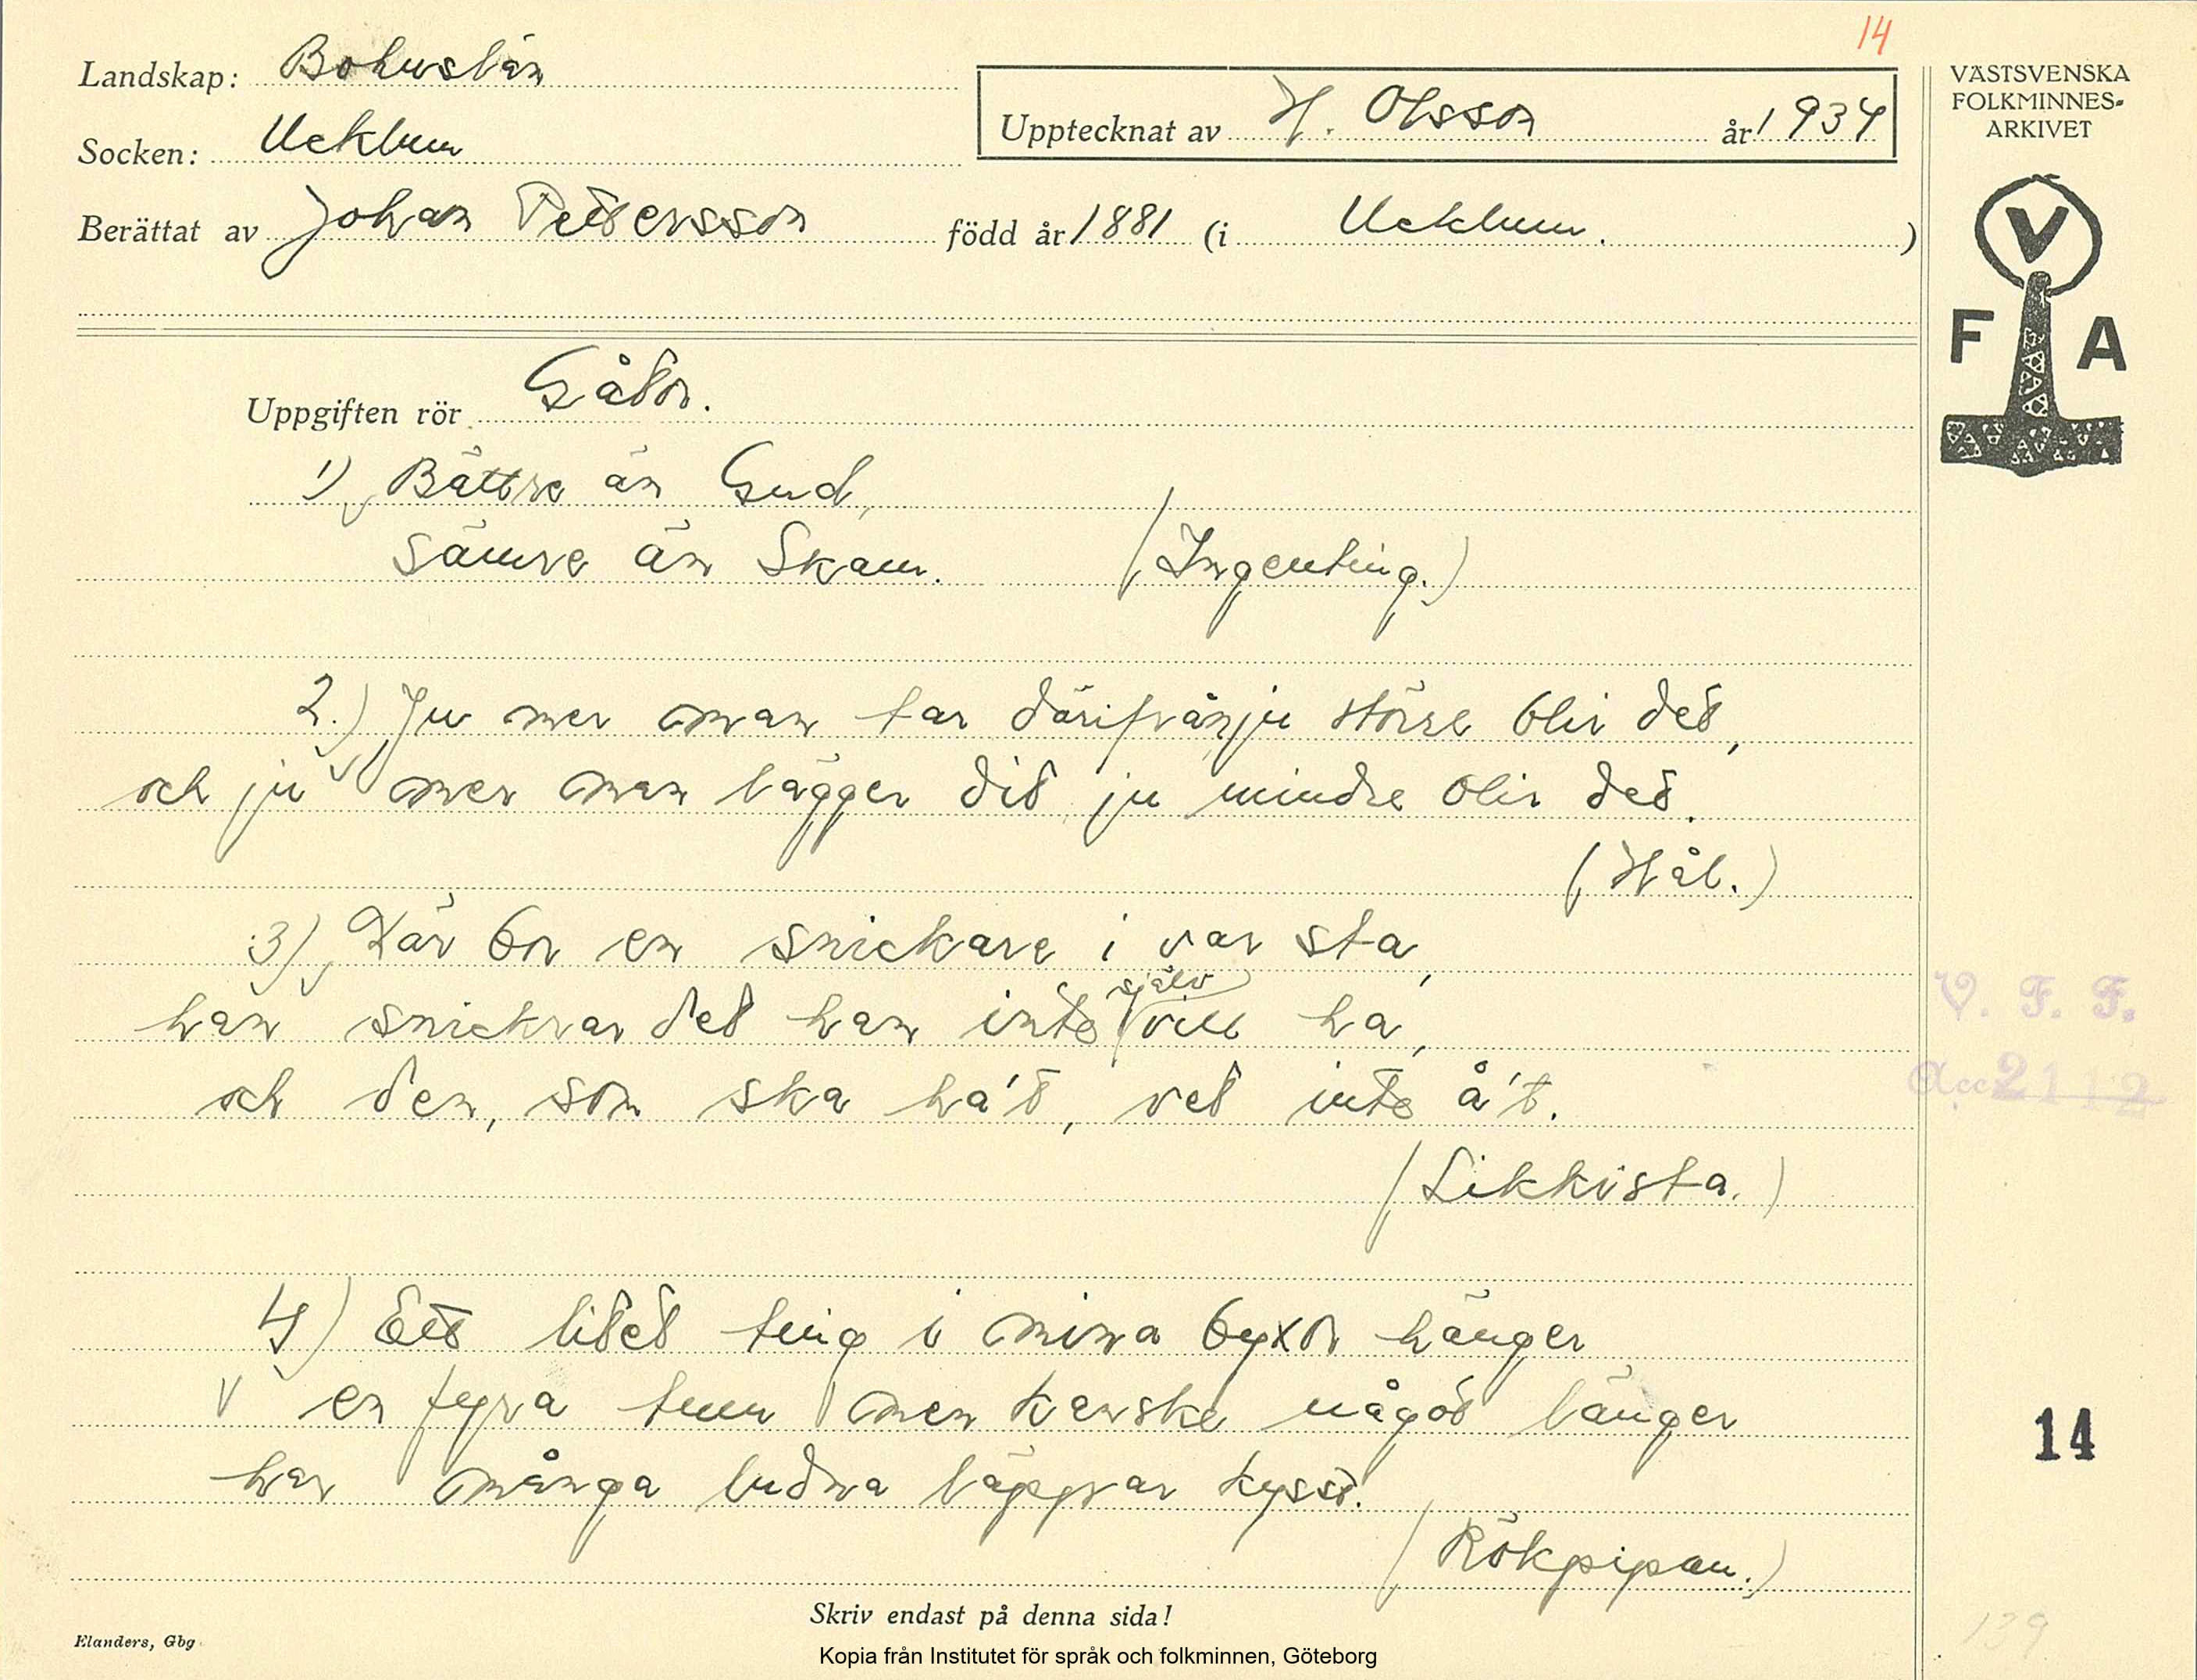 14
Landskap: Bohuslän
Upptecknat av H. Olsson år 1934
VÄSTSVENSKA
FOLKMINNES-
ARKIVET
Socken: Ucklum
Berättat av Johan Pettersson född år 1881 (i Ucklum.)
V
F A
Uppgiften rör Gåtor.
1) Bättre än Gud,
sämre än Skam. (Ingenting.)
2.) Ju mer man tar därifrån, ju större blir det,
och ju mer man lägger dit ju mindre blir det.
(Hål.)
3) Där bor en snickare i var sta,
han snickrar det han inte själv vill ha,
och den, som ska ha't, vet inte å't.
(Likkista.)
V. F. F.
Acc 2112
4) Ett litet ting i mina byxor hänger
en fyra tum men kanske något länger
har många ludna läppar kysst.
(Rökpipan.)
14
Skriv endast på denna sida!
Elanders, Gbg
139
Kopia från Institutet för språk och folkminnen, Göteborg